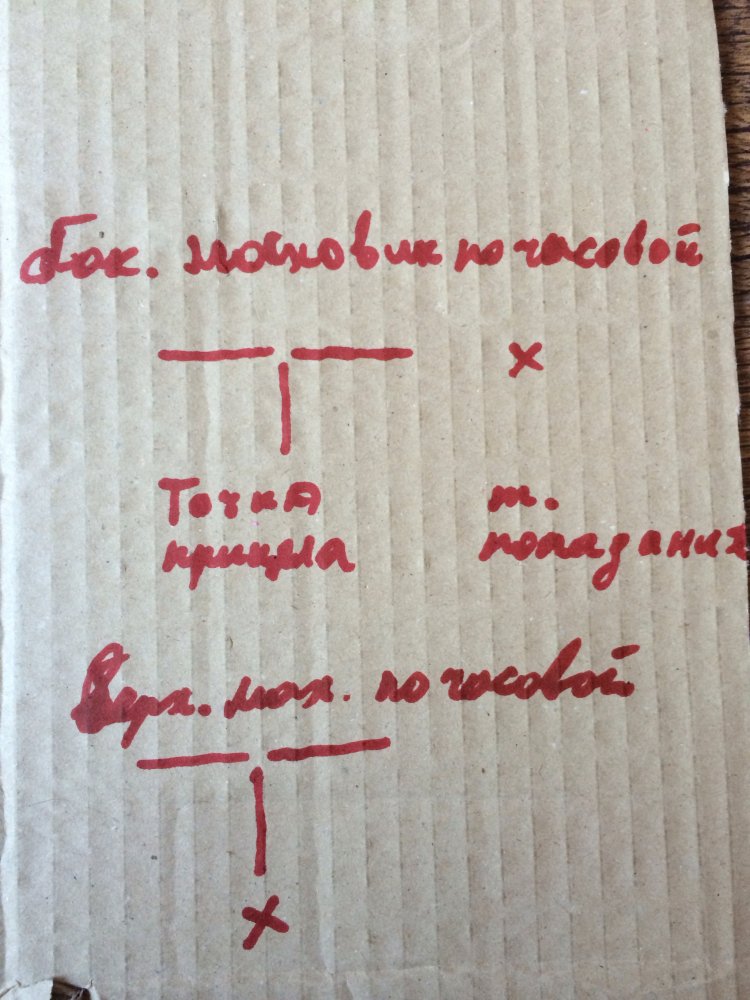 бок. маховик по часовой
Точка т.
прицела попадания
Верх. мах. по часовой